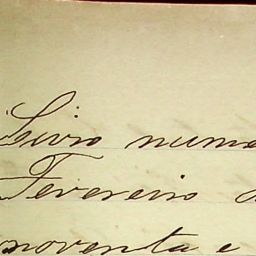 Livro nume
Fevereiro d
noventa e